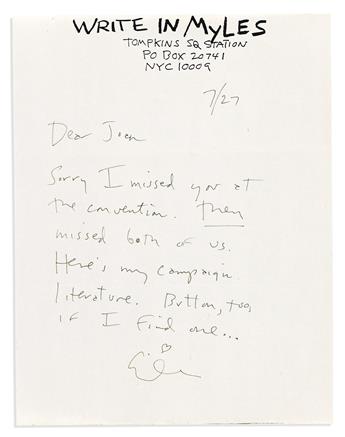 WRITE IN MYLES
TOMPKINS SQ STATION
PO BOX 20741
NYC 10009
7/27
Dear Joan
Sorry I missed you at
the convention. They
missed both of us.
Here's my campaign
literature. Button, too,
if I find one...
Eileen